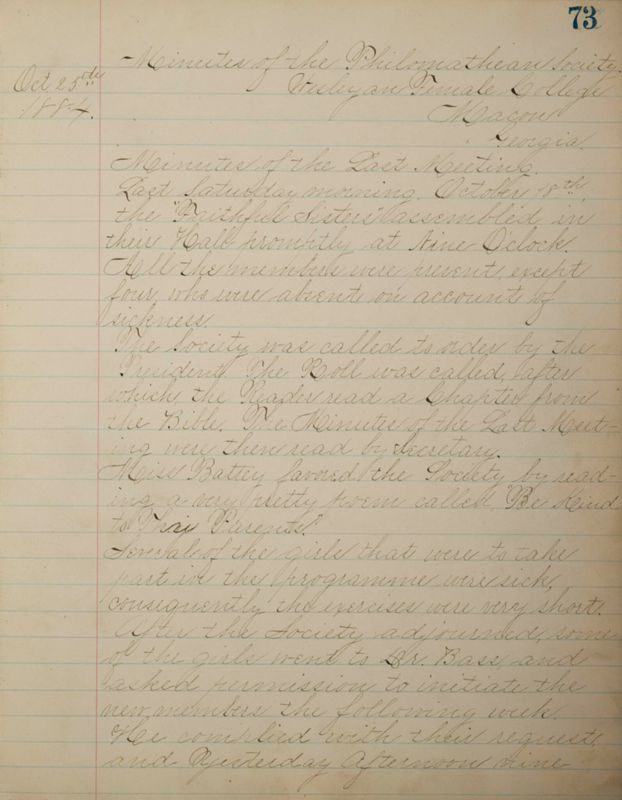 73
Oct 25th
1884.
Minutes of the Philomathean Society
Wesleyan Female College
Macon
Georgia.
Minutes of the Last Meeting.
Last Saturday morning, October 18th,
the "Faithful Sisters" assembled in
their Hall promptly at Nine O'clock.
All the members were present, except
four, who were absent on account of
sickness.
The Society was called to order by the
President. The Roll was called, after
which the Reader read a Chapter from
the Bible. The Minutes of the Last Meet-
ing were then read by Secretary.
Miss Battey favored the Society by read-
ing a very pretty poem called, "Be Kind
to Parents".
Several of the girls that were to take
part in the programme were sick,
consequently the exercises were very short.
After the Society adjourned, some
of the girls went to Dr. Bass, and
asked permission to initiate the
new members the following week.
He complied with their request,
and Yesterday Afternoon nine